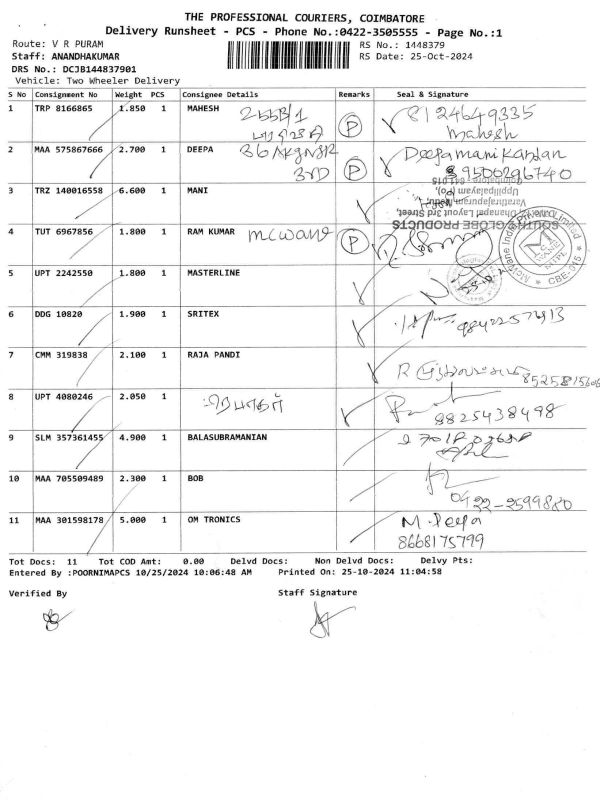 THE PROFESSIONAL COURIERS, COIMBATORE
Delivery Runsheet - PCS - Phone No.:0422-3505555 - Page No.:1
Route: V R PURAM RS No.: 1448379
Staff: ANANDHAKUMAR RS Date: 25-Oct-2024
DRS No.: DCJB144837901
Vehicle: Two Wheeler Delivery
S No Consignment No Weight PCS Consignee Details Remarks Seal & Signature
1 TRP 8166865 1.850 1 MAHESH 255B/1 P 8124649335
Mahesh
2 MAA 575867666 2.700 1 DEEPA P Deepa manikandan
3RD 9500296740
3 TRZ 140016558 6.600 1 MANI
SOUTH GLOBE PRODUCTS
Dhanapal Layout 3rd Street,
Varadharajapuram
Uppilipalayam (Po),
Coimbatore - 641 015
4 TUT 6967856 1.800 1 RAM KUMAR mcwane P
McWane India Private Limited
CBE-015
5 UPT 2242550 1.800 1 MASTERLINE
6 DDG 10820 1.900 1 SRITEX 9842257613
7 CMM 319838 2.100 1 RAJA PANDI R
8 UPT 4080246 2.050 1 9825438498
9 SLM 357361455 4.900 1 BALASUBRAMANIAN
10 MAA 705509489 2.300 1 BOB 0422-2599880
11 MAA 301598178 5.000 1 OM TRONICS M. Deepa
8668175799
Tot Docs: 11 Tot COD Amt: 0.00 Delvd Docs: Non Delvd Docs: Delvy Pts:
Entered By :POORNIMAPCS 10/25/2024 10:06:48 AM Printed On: 25-10-2024 11:04:58
Verified By Staff Signature